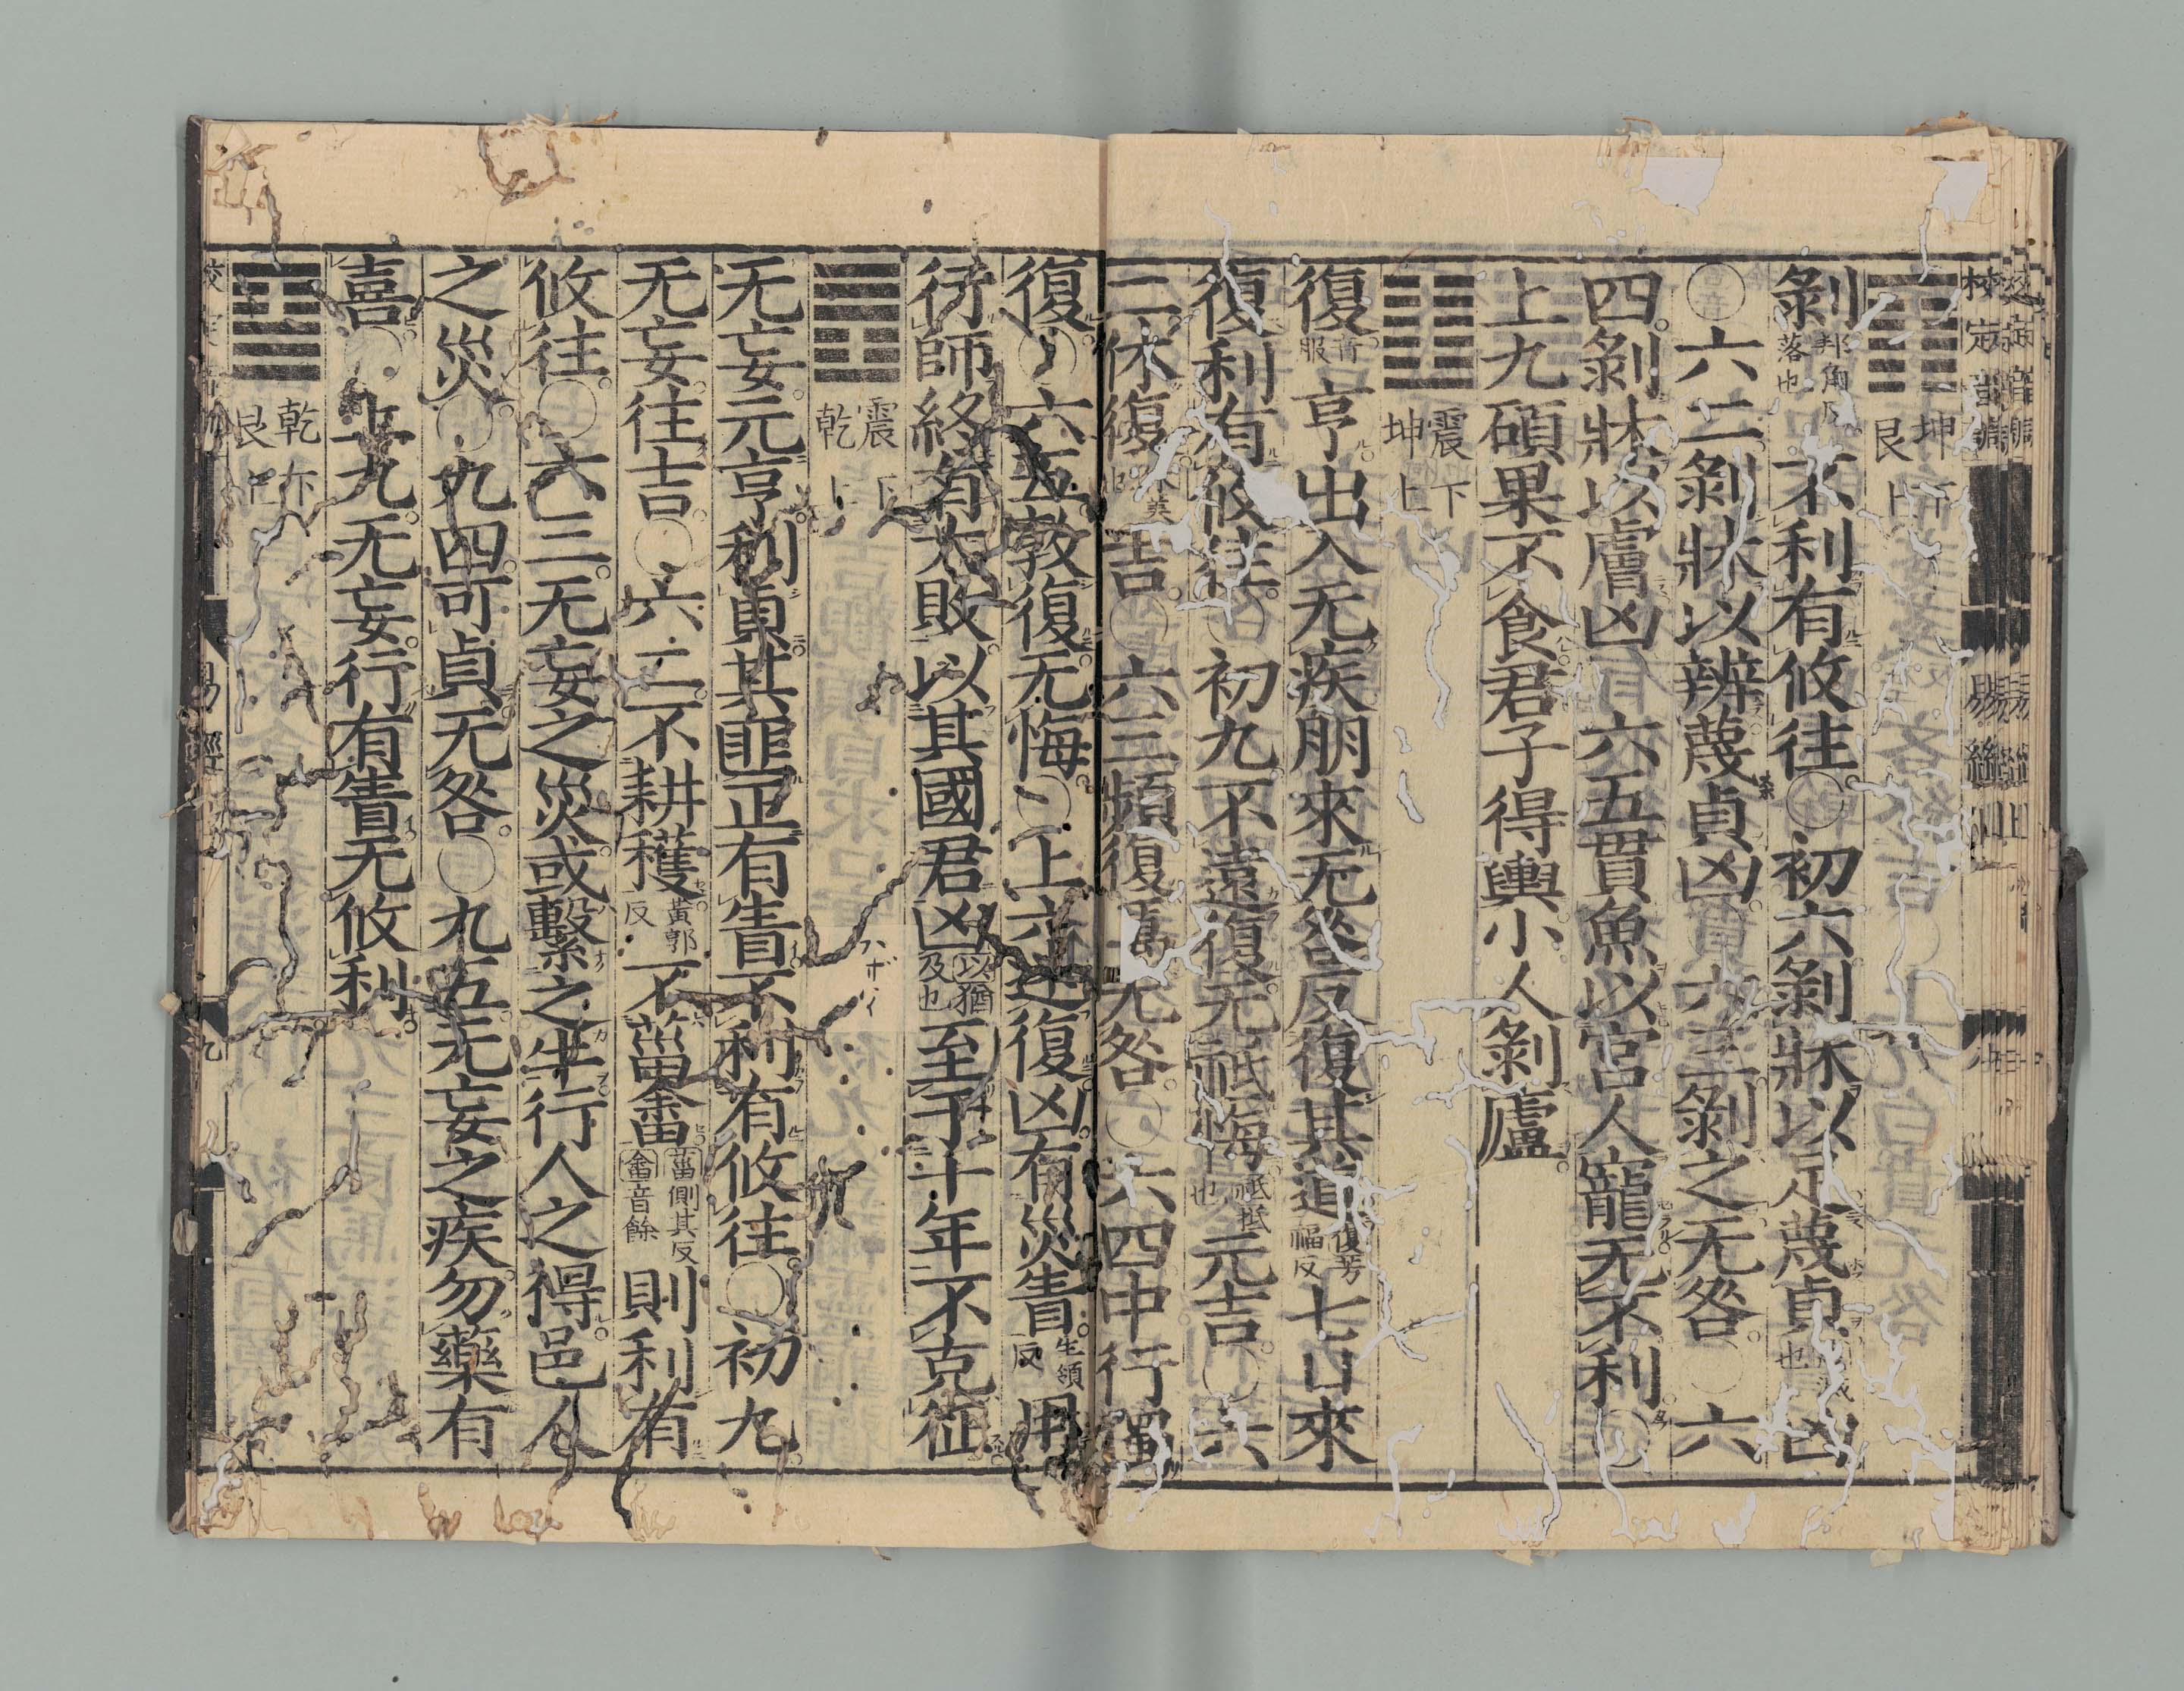 坤下
艮上
剝邦角反落也不利有攸往○初六剝牀以足蔑貞滅也凶
○六二剝牀以辨蔑貞凶○六三剝之无咎○六
四剝牀以膚凶○六五貫魚以宮人寵无不利○
上九碩果不食君子得輿小人剝廬
震下
坤上
復音服亨出入无疾朋來无咎反復芳福反其道七日來
復利有攸往○初九不遠復无祗悔祗抵也元吉○六
二休復美也吉○六三頻復厲无咎○六四中行獨
復○六五敦復无悔○上六迷復凶有災眚生領反用
行師終有大敗以其國君凶以猶及也至于十年不克征
震下
乾上
无妄元亨利貞其匪正有眚不利有攸往○初九
无妄往吉○六二不耕穫黃郭反不菑畬菑側其反畬音餘則利有
攸往○六三无妄之災或繫之牛行人之得邑人
之災○九四可貞无咎○九五无妄之疾勿藥有
喜○上九无妄行有眚无攸利
乾下
艮上
易經